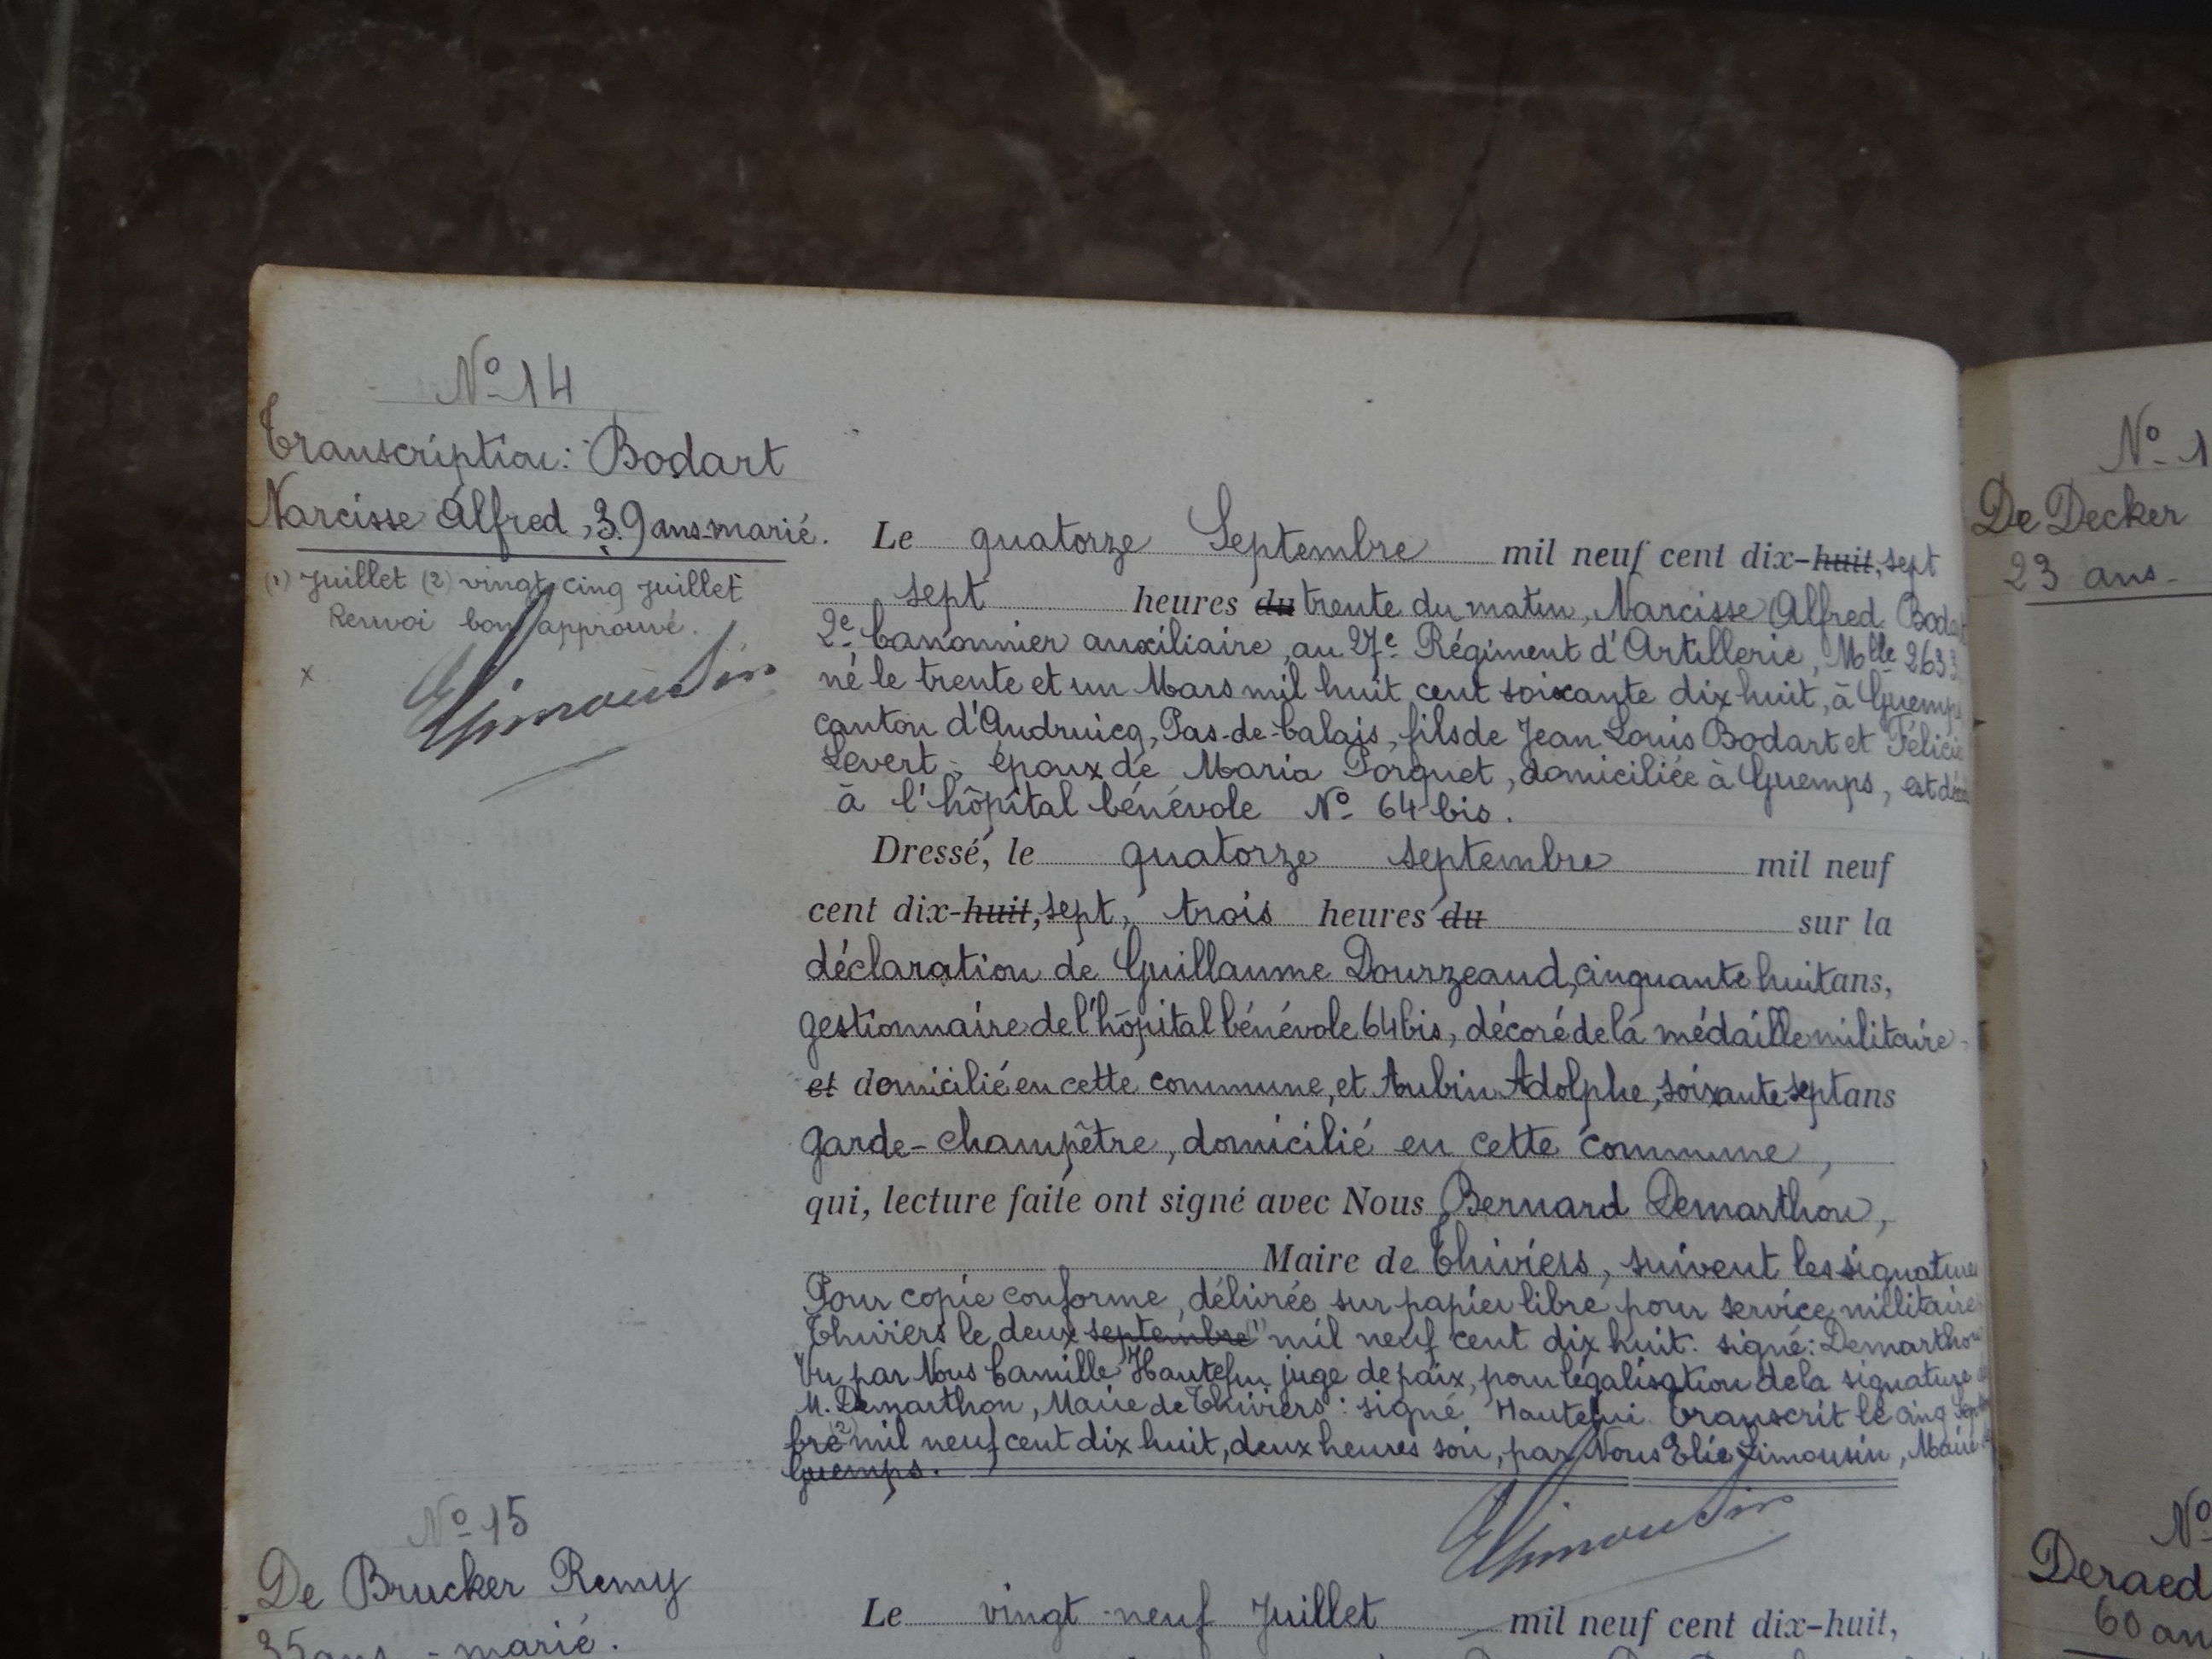 Nº 14
Transcription: Bodart
Narcisse Alfred, 39 ans marié.
(1) Juillet (2) vingt cinq Juillet
Renvoi bon approuvé.
x
ELimousin
Le quatorze Septembre mil neuf cent dix-huit, sept
sept heures du trente du matin, Narcisse Alfred
2e Canonnier auxiliaire, au 27e Régiment d'Artillerie, Mlle 2633
né le trente et un Mars mil huit cent soixante dix huit, à Guemps
canton d'Audruicq, Pas-de-Calais, fils de Jean Louis Bodart et Félicie
Levert, époux de Maria Porquet, domiciliée à Guemps, est
à l'hôpital bénévole Nº 64 bis.
Dressé, le quatorze septembre mil neuf
cent dix-huit, sept, trois heures du sur la
déclaration de Guillaume Dourzeaud, cinquante huit ans,
gestionnaire de l'hôpital bénévole 64 bis, décoré de la médaille militaire
et domicilié en cette commune, et Aubin Adolphe, soixante sept ans
garde-champêtre, domicilié en cette commune,
qui, lecture faite ont signé avec Nous Bernard Demarthon,
Maire de Thiviers, suivent les signatures
Pour copie conforme, délivrée sur papier libre pour service militaire
Thiviers le deux septembre (1) mil neuf cent dix huit. signé: Demarthon
Vu par Nous Camille Hautefui juge de paix, pour légalisation de la signature
M. Demarthon, Maire de Thiviers: signé Hautefui. Transcrit le cinq Septem
bre (2) mil neuf cent dix huit, deux heures soir, par Nous Elie Limousin, Maire
Guemps.
ELimousin
Nº 15
De Brucker Remy
35 ans - marié.
Le vingt-neuf Juillet mil neuf cent dix-huit,
Nº 1
De Decker
23 ans -
Nº
Deraed
60 an